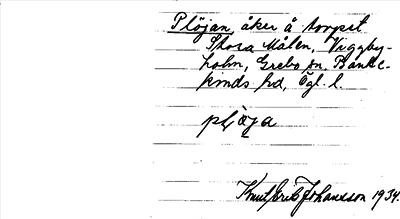 Plöjan, åker å torpet
Stora Målen, Viggby-
holm, Grebo sn, Banke-
kinds hd, Ögl. l.
plö̀ja
Knut Erik Johansson 1934.